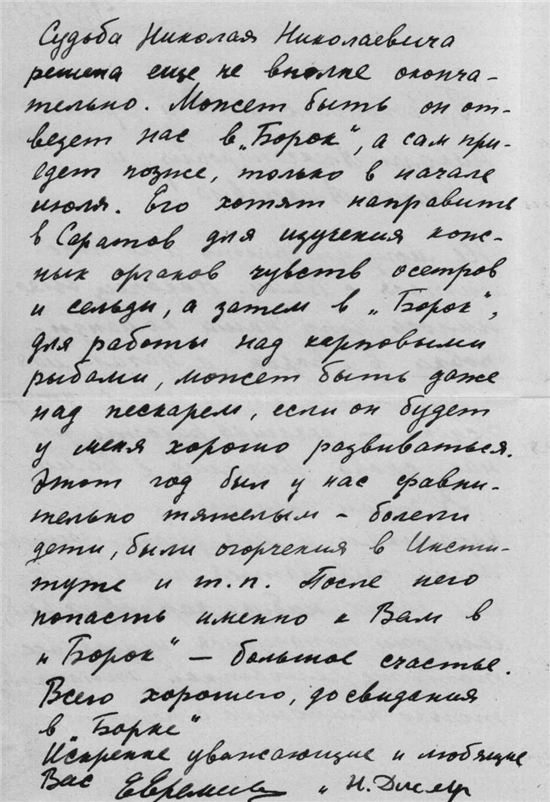 Судьба Николая Николаевича
решена еще не вполне оконча-
тельно. Может быть он от-
везет нас в „Борок“, а сам при-
едет позже, только в начале
июля. Его хотят направить
в Саратов для изучения кож-
ных органов чувств осетров
и сельди, а затем в „Борок“,
для работы над карповыми
рыбами, может быть даже
над пескарем, если он будет
у меня хорошо развиваться.
Этот год был у нас сравни-
тельно тяжелым – болели
дети, были огорчения в Инсти-
туте и т.п. После него
попасть именно к Вам в
„Борок“ – большое счастье.
Всего хорошего, до свидания
в „Борке“
Искренне уважающие и любящие
Вас